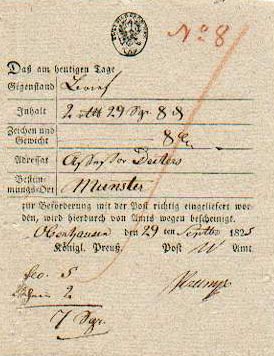 No 8
Daß am heutigen Tage
Gegenstand Brief
Inhalt 2 rthl 29 Sgr. 8 ₰
Zeichen und
Gewicht
Adressat Assessor Deiters
Bestim-
mungs-Ort Münster
zur Beförderung mit der Post richtig eingeliefert wor-
den, wird hierdurch von Amts wegen bescheinigt.
Oberhausen den 29 ten Septbr 1825
Königl. Preuß. Post W Amt
5
Schein 2
7 Sgr.